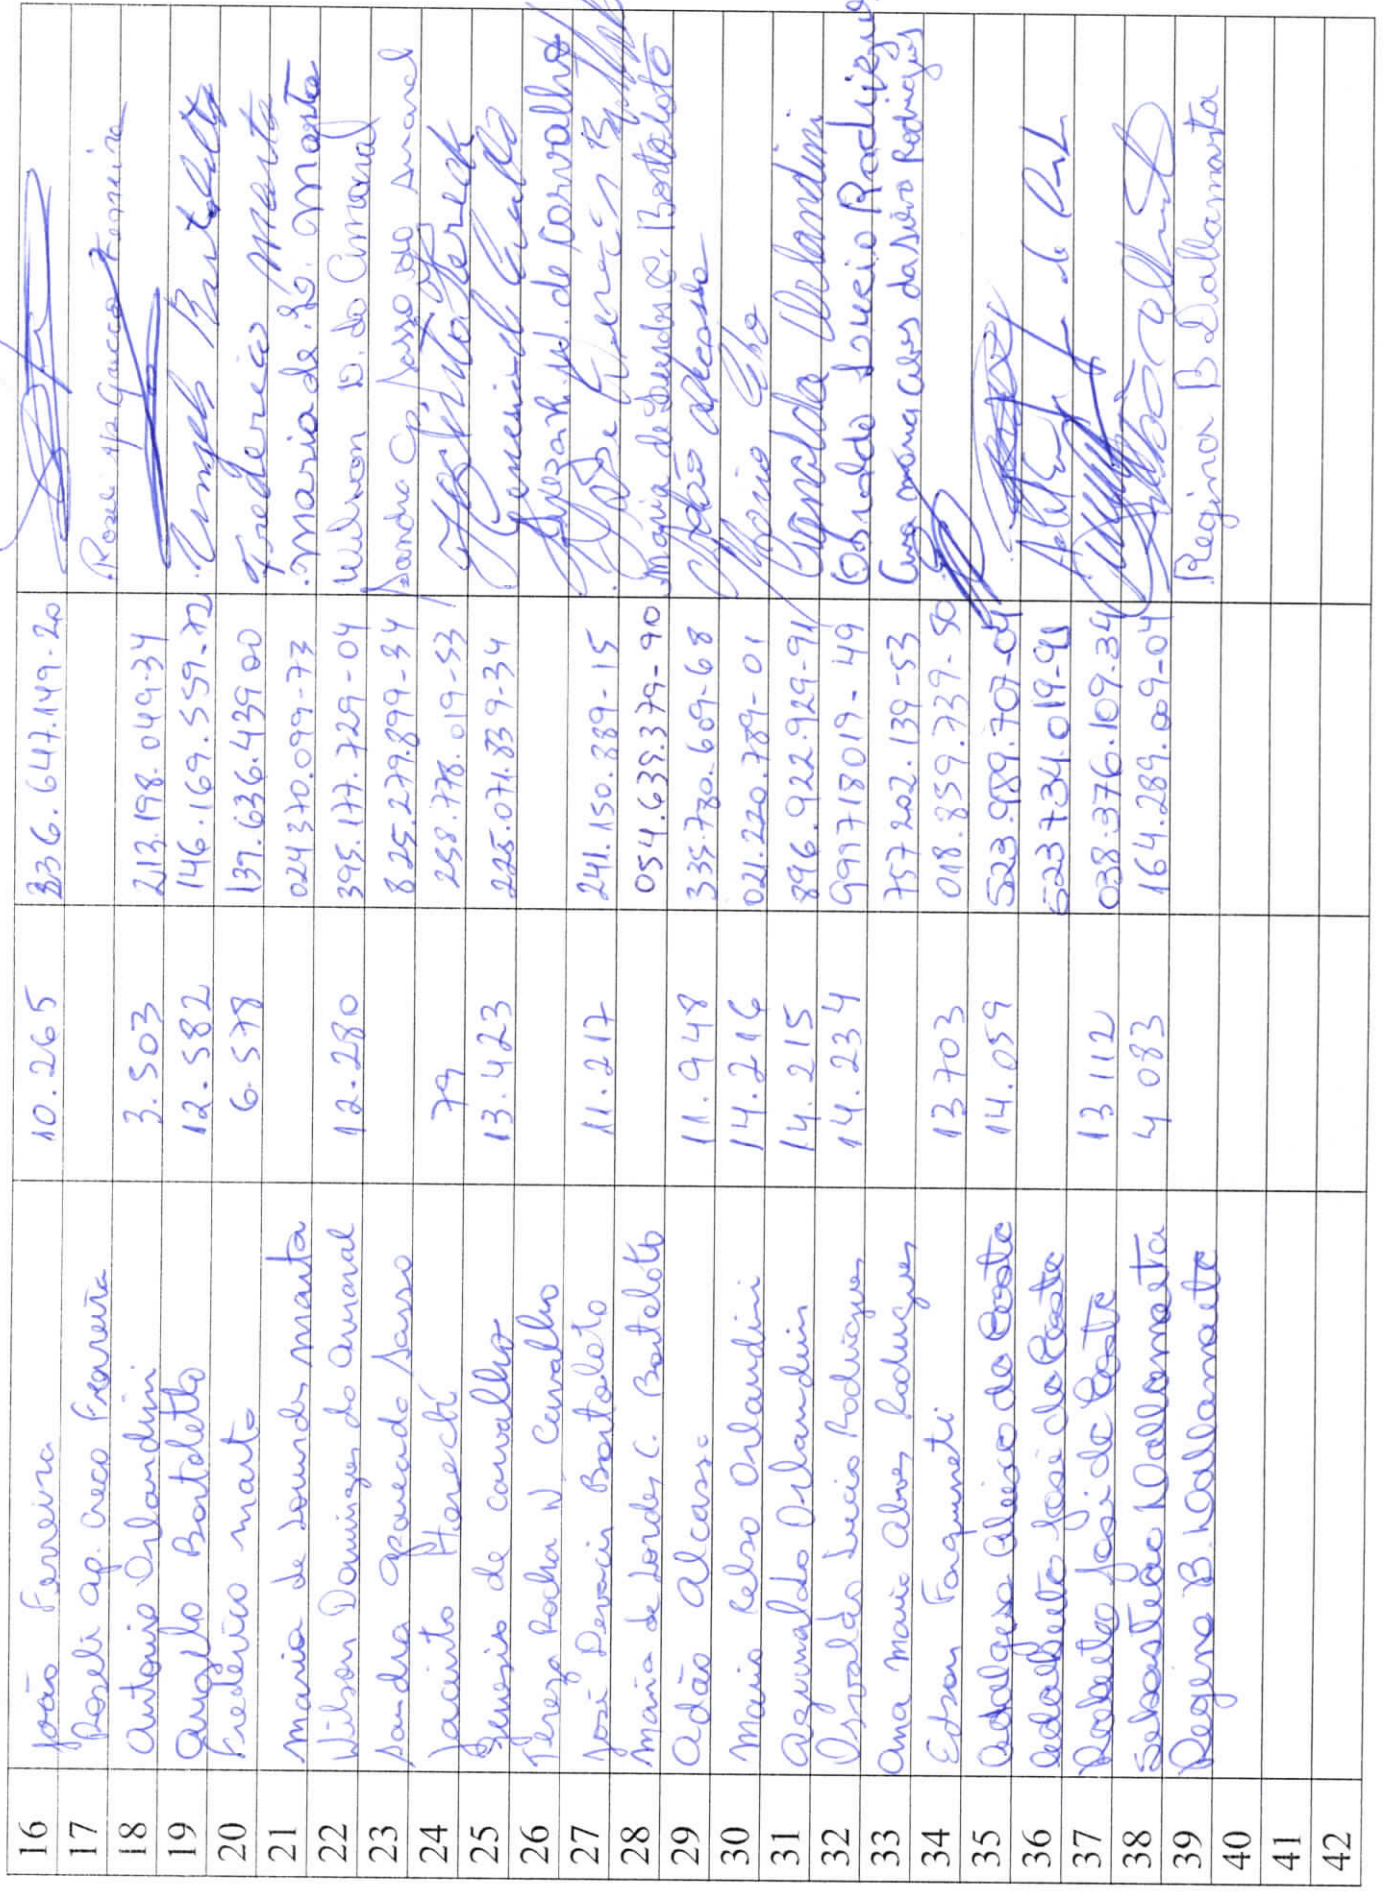 16 João Ferreira 10.265 336.647.149-20
17 Roseli ap. Greco Ferreira Roseli Ap Greco Ferreira
18 Antonio Orlandini 3.503 213.198.049-34
19 Angelo Bortoletto 12.582 146.169.559-72 Angelo Bortoletto
20 Frederico marto 6.578 139.636.439 00 Frederico Marto
21 Maria de Lourdes marta 024370.099-73 Maria de Lo. Marta
22 Wilson Domingos do Amaral 12.280 395.177.729-04 Wilson D. do Amaral
23 Sandra Aparecida Sasso 825.279.899-34 Sandra Ap Sasso do Amaral
24 Jacinto Hereck 79 258.778.019-53 Jacinto Hereck
25 de Carvalho 13.423 225.071.839-34
26 Tereza Rocha N. Carvalho Tereza R. N. de Carvalho
27 José Devacir Bortoloto 11.217 241.150.889-15 José
28 Maria de Lordes C. Bortoloto 054.639.379-90 Maria de Lourdes C. Bortoloto
29 Adão Alcasse 11.948 335.780.609-68 Adão Alcasse
30 Mario Celso Orlandini 14.216 021.220.789-01 Mario
31 Aguinaldo Orlandini 14.215 896.922.929-91 Orlandini
32 Osvaldo Lucio Rodrigues 14.234 999718019-49 Osvaldo Loucio Rodrigues
33 Ana Maria Alves Rodrigues 757202.139-53 Ana maria alves da silva Rodrigues
34 Edson 13703 018.859.739-50
35 da Costa 14.059 523.989.707-04
36 Adalberto José da Costa 523734.019-91
37 Roberto José da Costa 13112 038.376.109.34
38 Sebastião Dallamarta 4 083 164.289.009-04
39 Regina B. Dallamarta Regina B Dallamarta
40
41
42